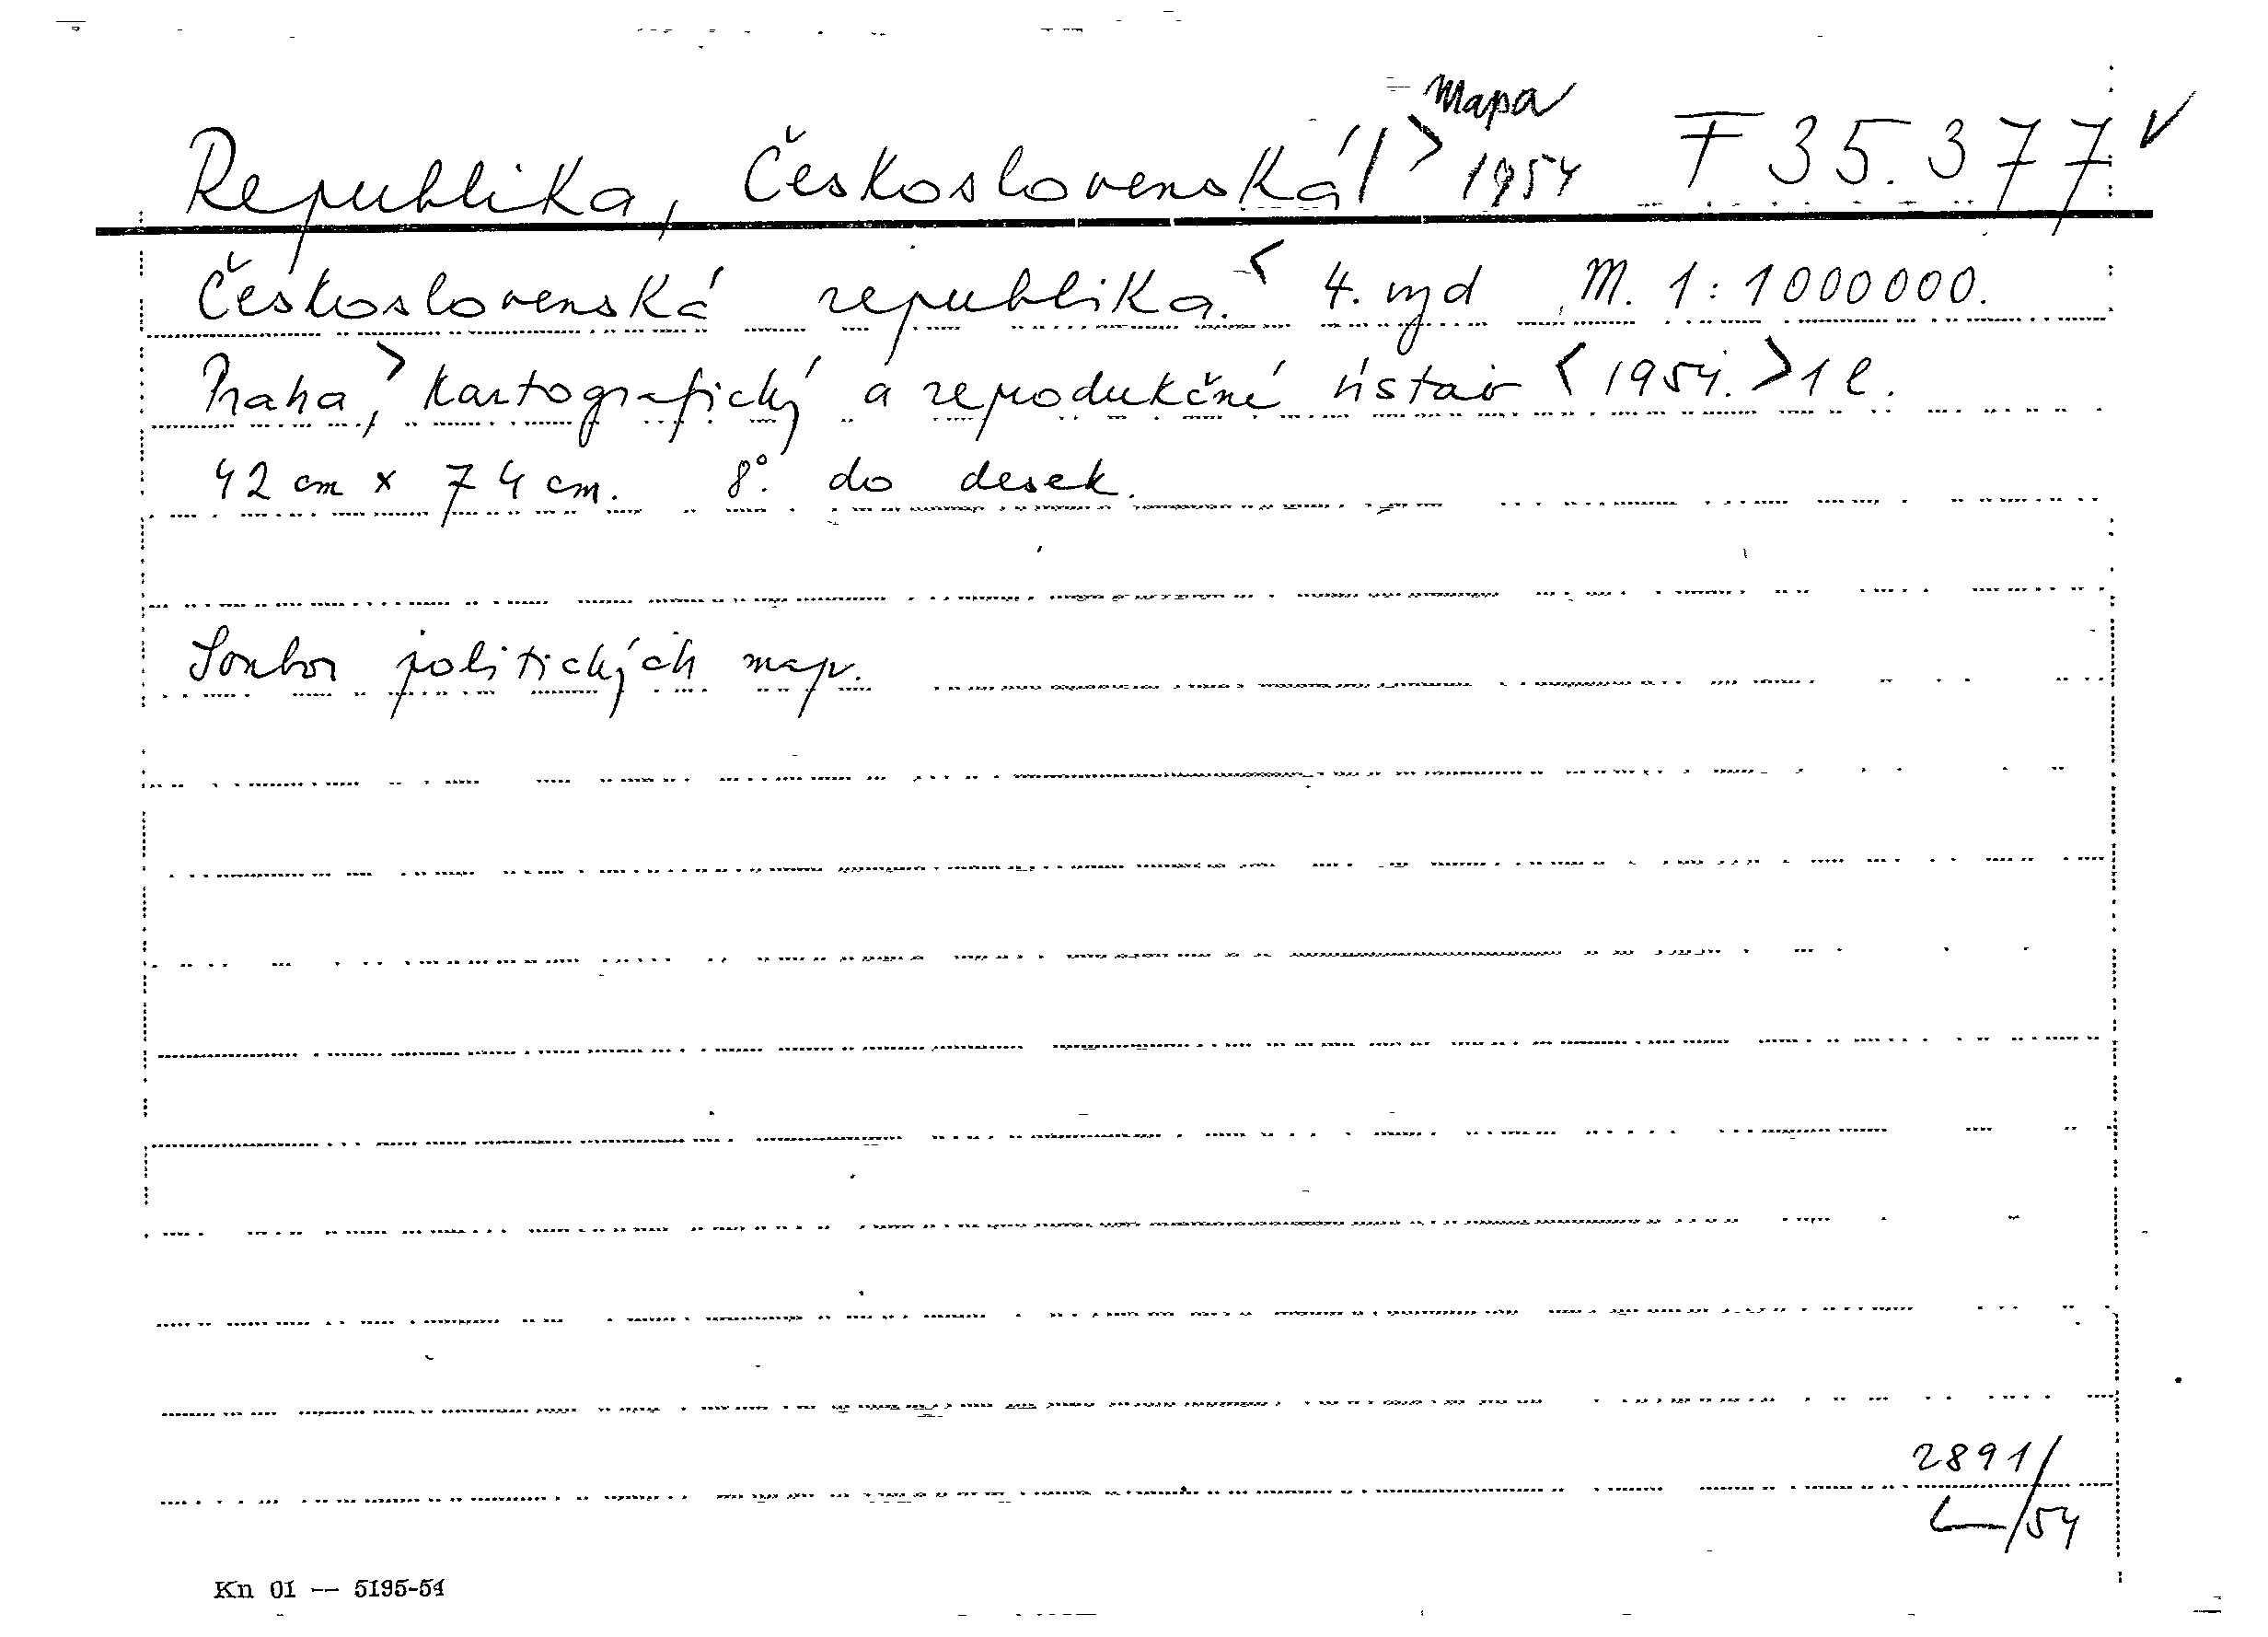 Mapa
Republika, Československá/ > 1954 F 35.377 v
Československá republika. < 4. vyd M. 1:1000000.
Praha, > Kartografický a reprodukční ústav < 1954. > 1 l.
42 cm x 74 cm. 8°. do desek.
Soubor politických map.
2891/
54
Kn 01 -- 5195-54